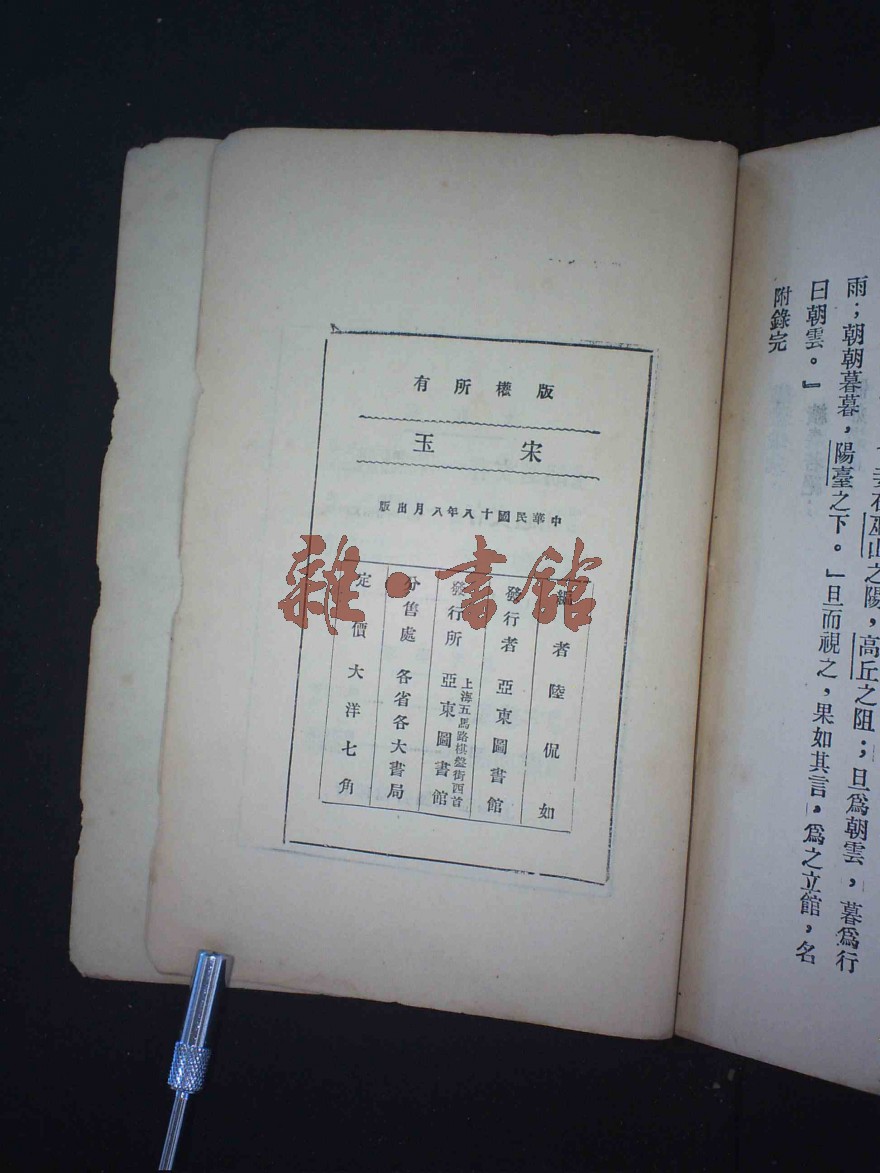 雨；朝朝暮暮，陽臺之下。』旦而視之，果如其言，爲之立館，名
曰朝雲。』
附錄完
版權所有
宋玉
中華民國十八年八月出版
編者 陸侃如
發行者 亞東圖書館
發行所 上海五馬路棋盤街西首 亞東圖書館
分售處 各省各大書局
定價 大洋七角
雜·書館